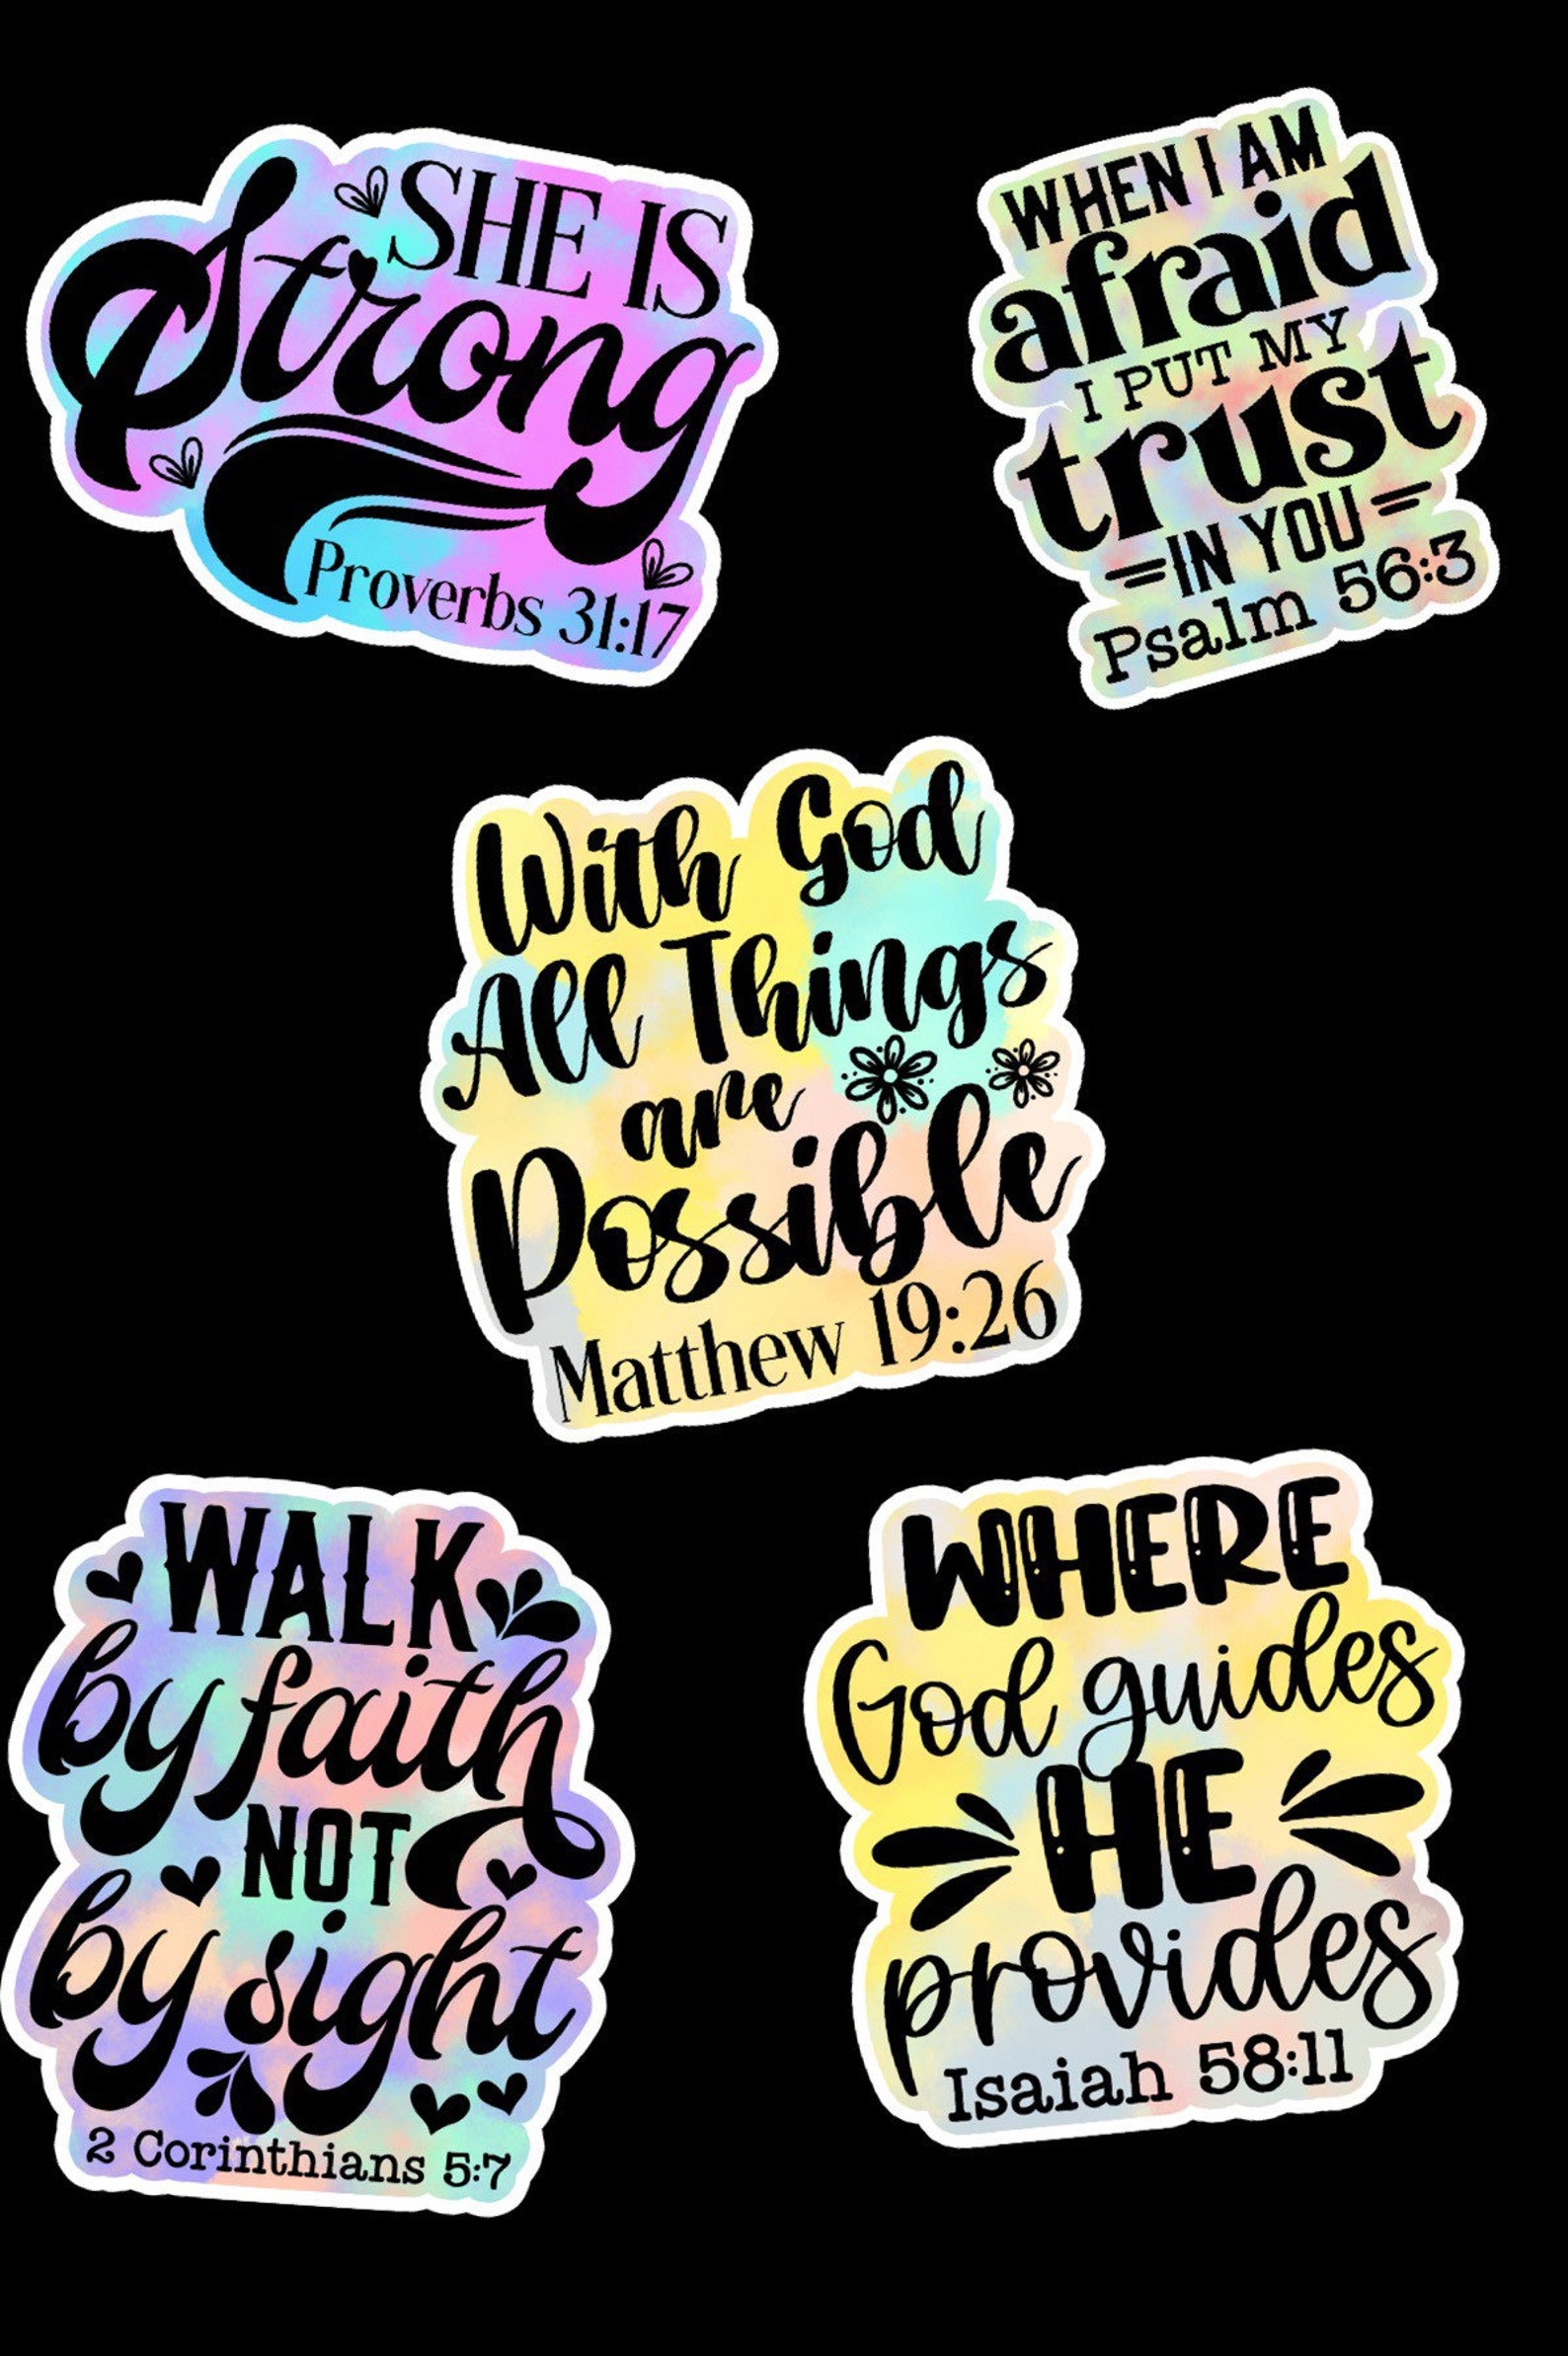 SHE IS
Strong
Proverbs 31:17
WHEN I AM
afraid
I PUT MY
trust
IN YOU
Psalm 56:3
With God
All Things
are
Possible
Matthew 19:26
WALK
by faith
NOT
by sight
2 Corinthians 5:7
WHERE
God guides
HE
provides
Isaiah 58:11